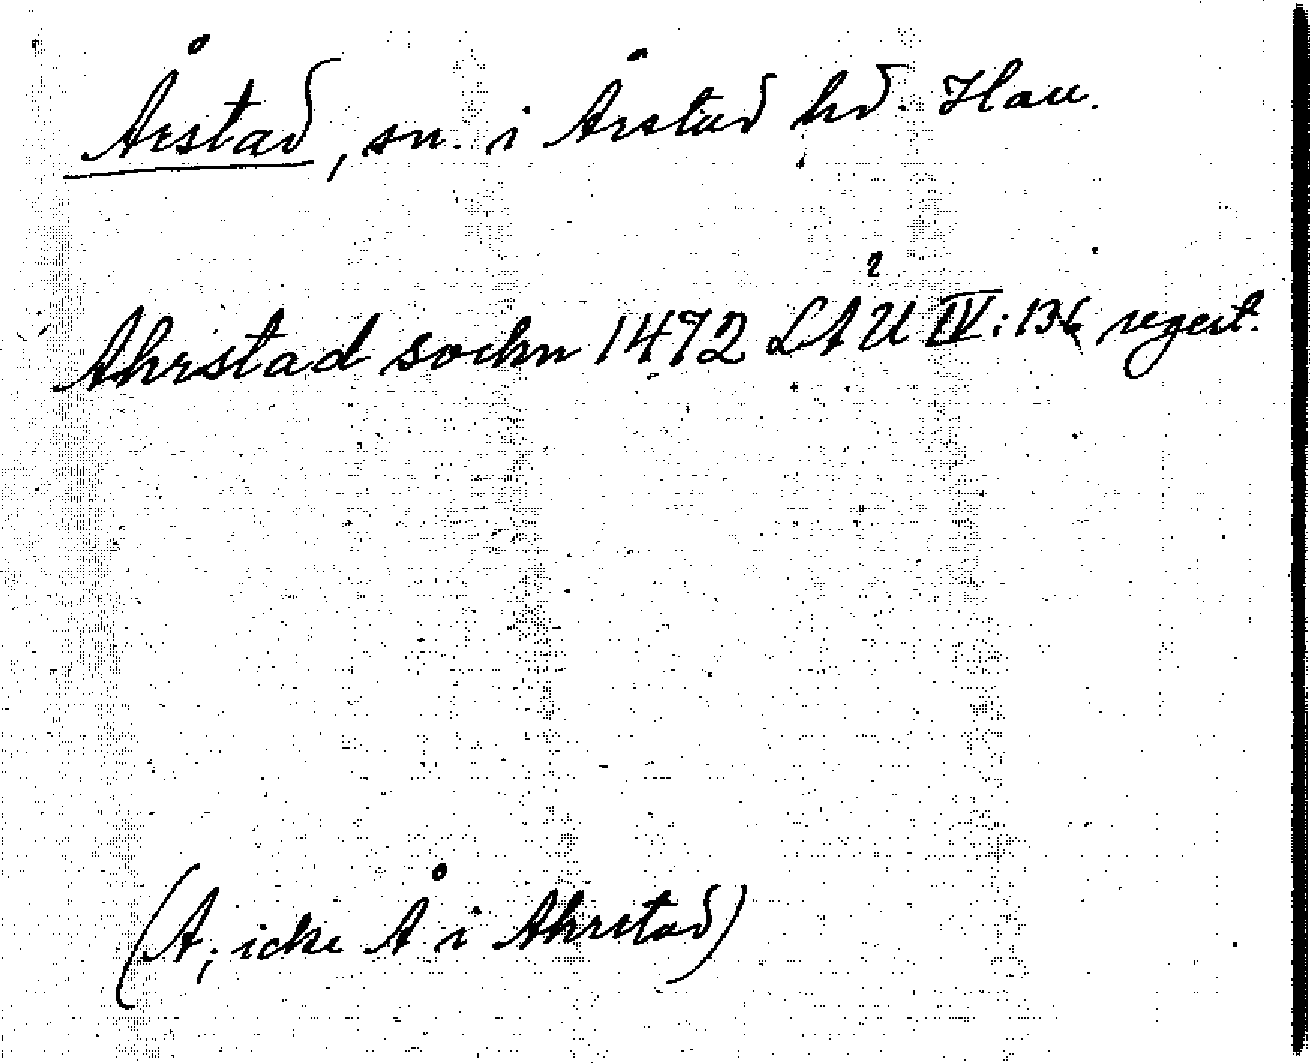 Årstad, sn. i Årstad hd. Hall.
Ahrstad sockn 1472 LÅU IV: 136 regest.
(A, icke Å i Ahrstad)